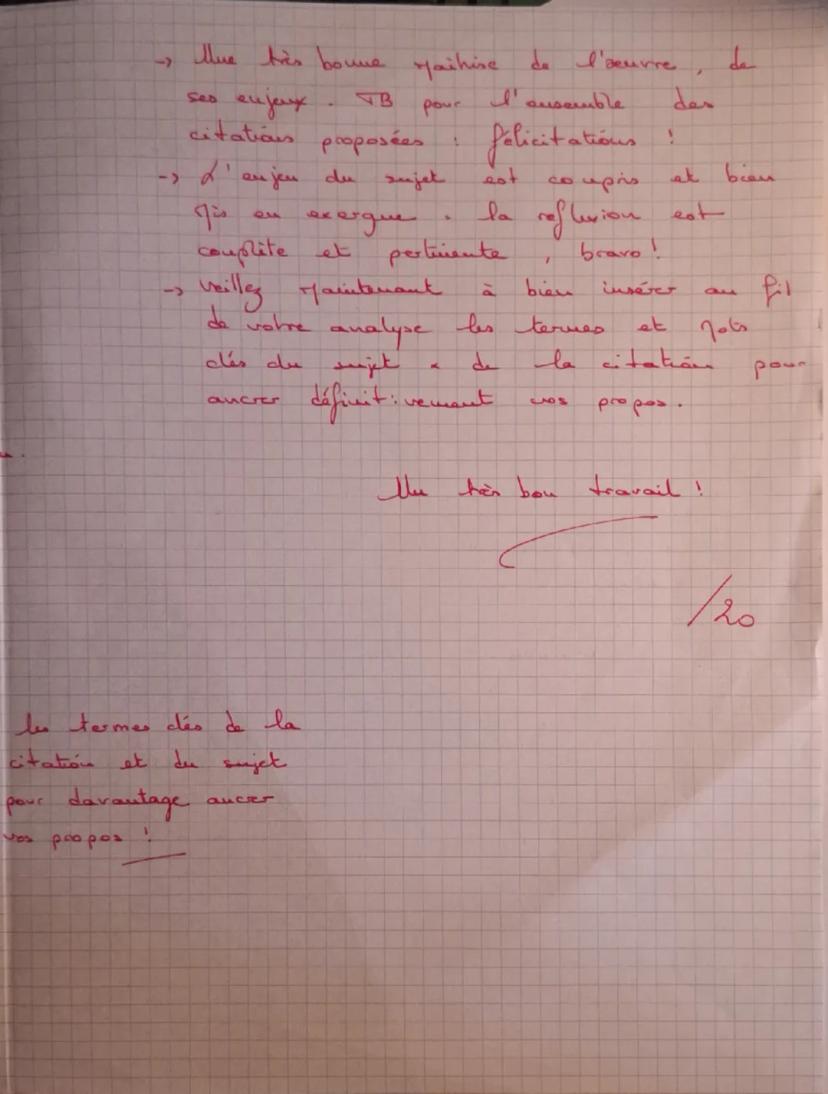 → Une très bonne maîtrise de l'œuvre, de
ses enjeux. TB pour l'ensemble des
citations proposées : félicitations !
→ L'enjeu du sujet est compris et bien
mis en exergue. la reflexion est
complète et pertinente, bravo !
→ Veillez maintenant à bien insérer au fil
de votre analyse les termes et mots
clés du sujet & de la citation pour
ancrer définitivement vos propos.
Un très bon travail !
/20
les termes clés de la
citation et du sujet
pour davantage ancrer
vos propos !